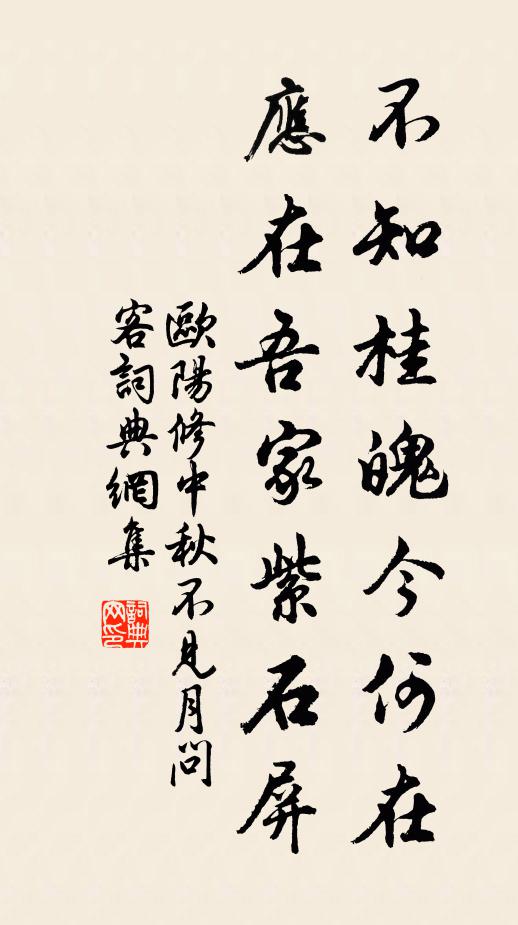 不知桂魄今何在
應在吾家紫石屏
歐陽修中秋不見月問
客詞典網集
詞典网印